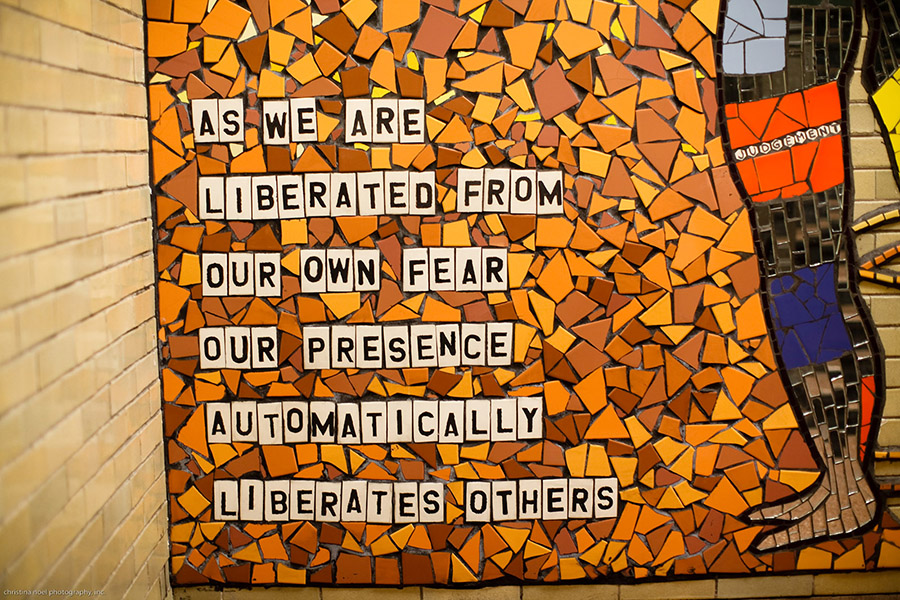 AS WE ARE
LIBERATED FROM
OUR OWN FEAR
OUR PRESENCE
AUTOMATICALLY
LIBERATES OTHERS
JUDGEMENT
christina noel photography, inc